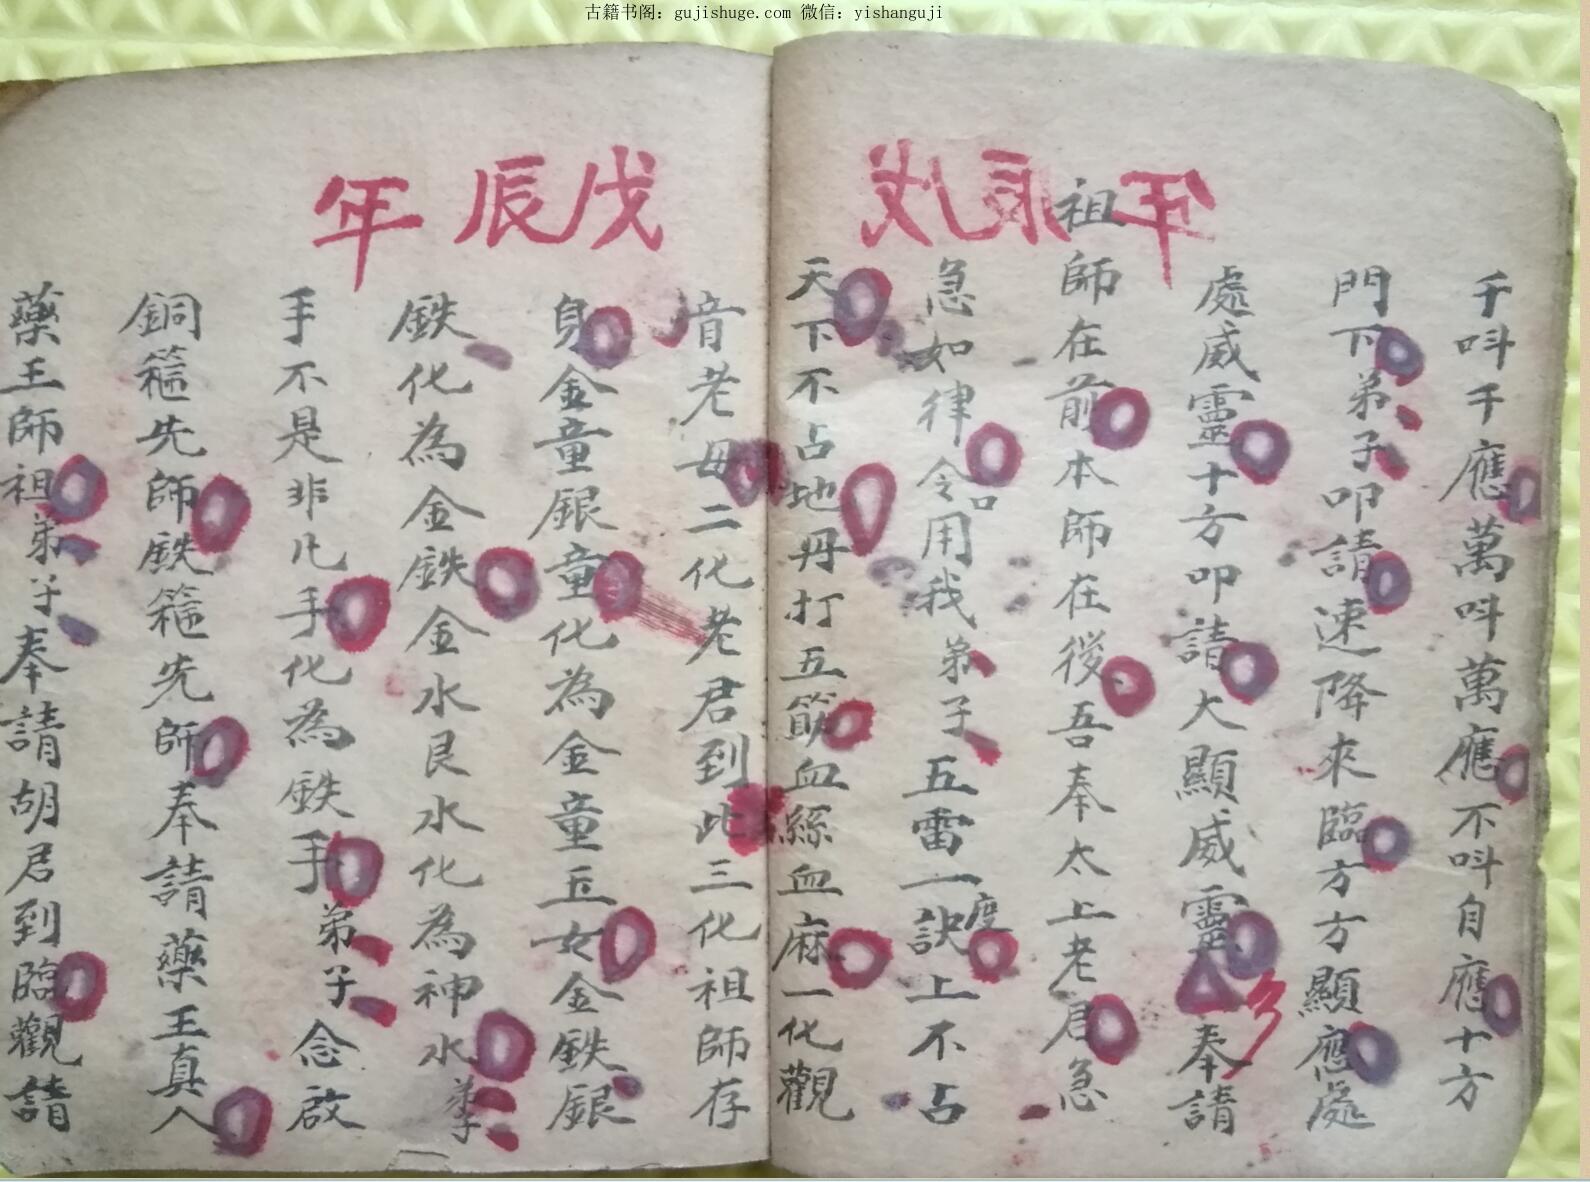 古籍书阁：gujishuge.com 微信：yishanguji
戊辰年
千呌千應萬呌萬應不呌自應十方
門下弟子叩請速降來臨方方顯應處
處威靈十方叩請大顯威靈奉請
祖師在前本師在後吾奉太上老君急
急如律令用我弟子五雷一訣上不占
口
度
天下不占地丹打五筋血絲血麻一化觀
音老母二化老君到此三化祖師存
身金童銀童化為金童玉女金鉄銀
鉄化為金鉄金水艮水化為神水弟子
手不是非凡手化為鉄手弟子念啟
銅箍先師鉄箍先師奉請藥王真人
藥王師祖弟子奉請胡君到臨觀請